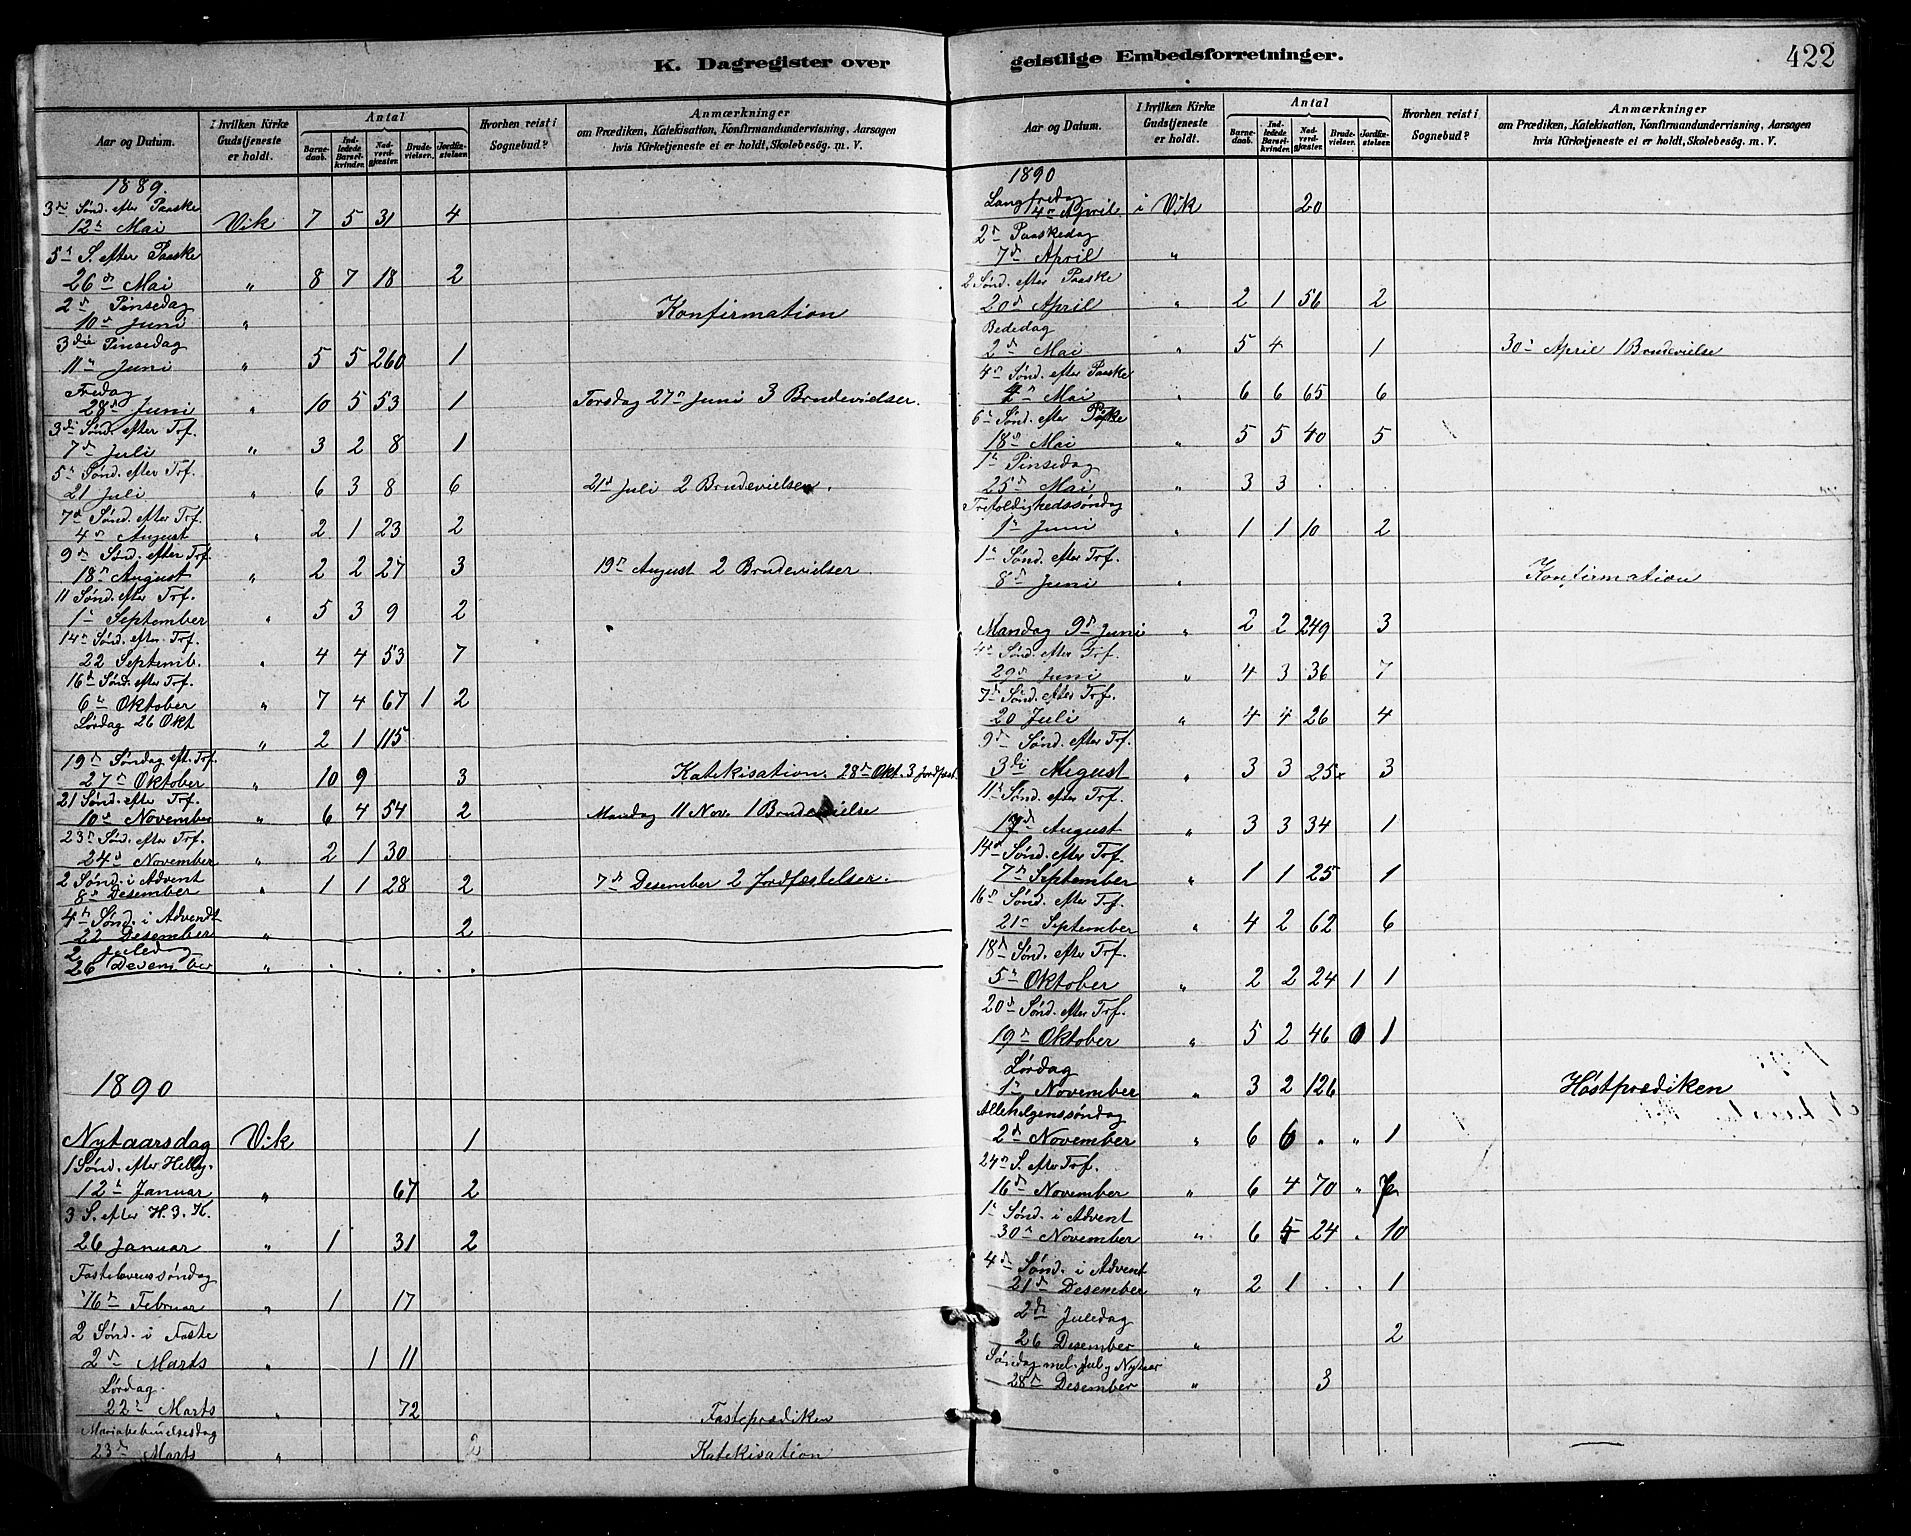 K. Dagregister over
Aar og Datum.
I hvilken Kirke Gudstjeneste er holdt.
Antal
Barnedaab.
Indledede Barselkvinder.
Nadverdgjæster.
Brudevielser.
Jordfæstelser.
Hvorhen reist i Sognebud?
Anmærkninger
om Prædiken, Katekisation, Konfirmandundervisning, Aarsagen
hvis Kirketjeneste ei er holdt, Skolebesøg. m. V.
1889.
3di Sønd. efter Paaske
12te Mai Vik 7 5 31 4
5te S. efter Paaske
26de Mai " 8 7 18 2
2d Pinsedag
10de Juni " Konfirmation
3die Pinsedag
11te Juni " 5 5 260 1
Fredag
28de Juni " 10 5 53 1 Torsdag 27de Juni 3 Brudevielser.
3di Sønd. efter Trf.
7de Juli " 3 2 8 1
5te Sønd. efter Trf.
21 Juli " 6 3 8 6 21de Juli 2 Brudevielser.
7de Sønd. efter Trf.
4de August " 2 1 23 2
9de Sønd. efter Trf.
18de August " 2 2 27 3 19de August 2 Brudevielser
11 Sønd. efter Trf.
1te September " 5 3 9 2
14de Sønd. efter Trf.
22 Septemb. " 4 4 53 7
16de Sønd. efter Trf.
6te Oktober " 7 4 67 1 2
Lørdag 26 Okt
" 2 1 115
19de Søndag eft. Trf.
27de Oktober " 10 9 3 Katekisation. 28de Okt. 3 Jordfæst.
21 Sønd. efter Trf.
10de November " 6 4 54 2 Mandag 11 Nov. 1 Brudevielse
23de Sønd. efter Trf.
24de November " 2 1 30
2 Sønd. i Advent
8de Desember " 1 1 28 2 7de Desember 2 Jordfæstelser.
4de Sønd. i Advendt
22 Desember " 2
2 Juledag
26 Desember " . . . . .
1890
Nytaarsdag Vik 1
1 Sønd. efter Hellig.
12te Januar " 67 2
3 S. efter H. 3. K.
26 Januar " 1 31 2
Fastelavenssøndag
16de Februar " 1 17
2 Sønd. i Faste
2de Marts " 1 11
Lørdag.
22de Marts " 72 Fasteprædiken
Mariabebudelsesdag
23de Marts " 2 Katekisation
geistlige Embedsforretninger.
422
Aar og Datum.
I hvilken Kirke Gudstjeneste er holdt.
Antal
Barnedaab.
Indledede Barselkvinder.
Nadverdgjæster.
Brudevielser.
Jordfæstelser.
Hvorhen reist i Sognebud?
Anmærkninger
om Prædiken, Katekisation, Konfirmandundervisning, Aarsagen
hvis Kirketjeneste ei er holdt, Skolebesøg. m. V.
1890
Langfredag
4de April i Vik 20
2de Paaskedag
7de April "
2 Sønd. efter Paaske
20de April " 2 1 56 2
Bededag
2de Mai " 5 4 1 30te April 1 Brudevielse
4de Sønd. efter Paaske
4de Mai " 6 6 65 6
6te Sønd. efter Paaske
18de Mai " 5 5 40 5
1te Pinsedag
25de Mai " 3 3 . . .
Trefoldighedssøndag
1te Juni " 1 1 10 2
1te Sønd. efter Trf.
8de Juni " Konfirmation
Mandag 9de Juni " 2 2 249 3
4de Sønd. efter Trf.
29de Juni " 4 3 36 7
7de Sønd. efter Trf.
20 Juli " 4 4 26 4
9de Sønd. efter Trf.
3di August " 3 3 25 3
11te Sønd. efter Trf.
17de August " 3 3 34 1
14de Sønd. efter Trf.
7de September " 1 1 25 1
16de Sønd. efter Trf.
21de September " 4 2 62 6
18de Sønd. efter Trf.
5te Oktober " 2 2 24 1 1
20de Sønd. efter Trf.
19de Oktober " 5 2 46 0 1
Lørdag
1te November " 3 2 126 Høstprædiken
Allehelgenssøndag
2de November " 6 6 . " 1
24de S. efter Trf.
16de November " 6 4 70 "
1te Sønd. i Advent
30te November " 6 5 24 . 10
4de Sønd. i Advent
21de Desember " 2 1 . . 1
2di Juledag
26 Desember " 2
Søndag mel. Jul og Nytaar
28de Desember " 3